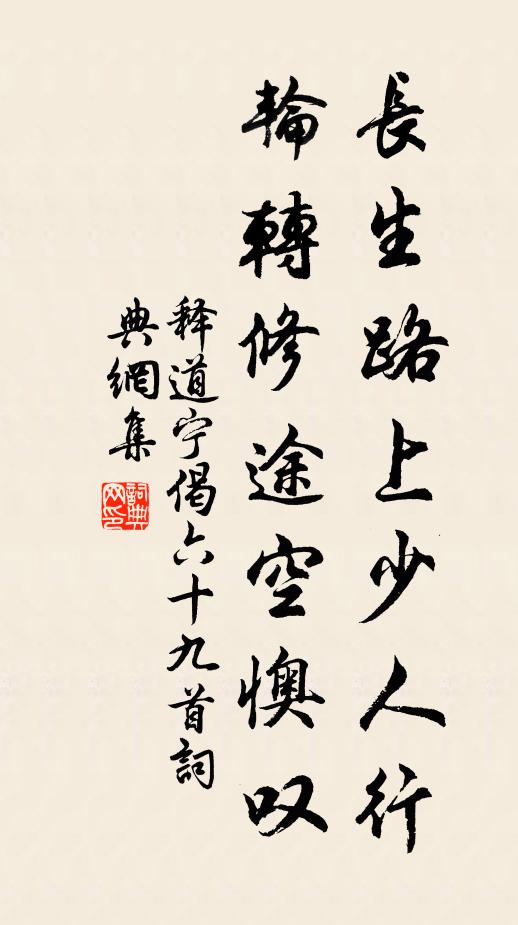 長生路上少人行
輪轉修途空懊叹
释道宁偈六十九首詞
典網集
詞典
网印